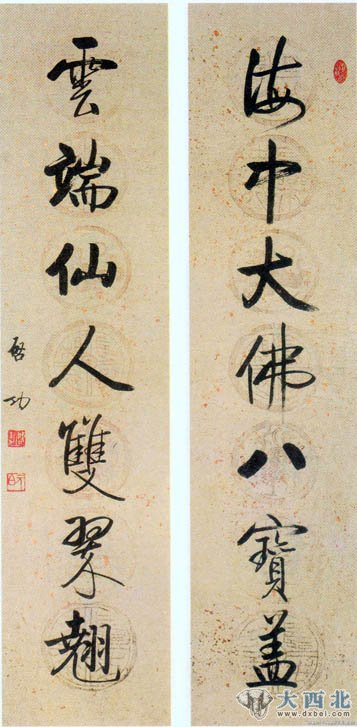 海中大佛八寶盖
雲端仙人雙翠翹
啓功
大西北
www.dxbei.com